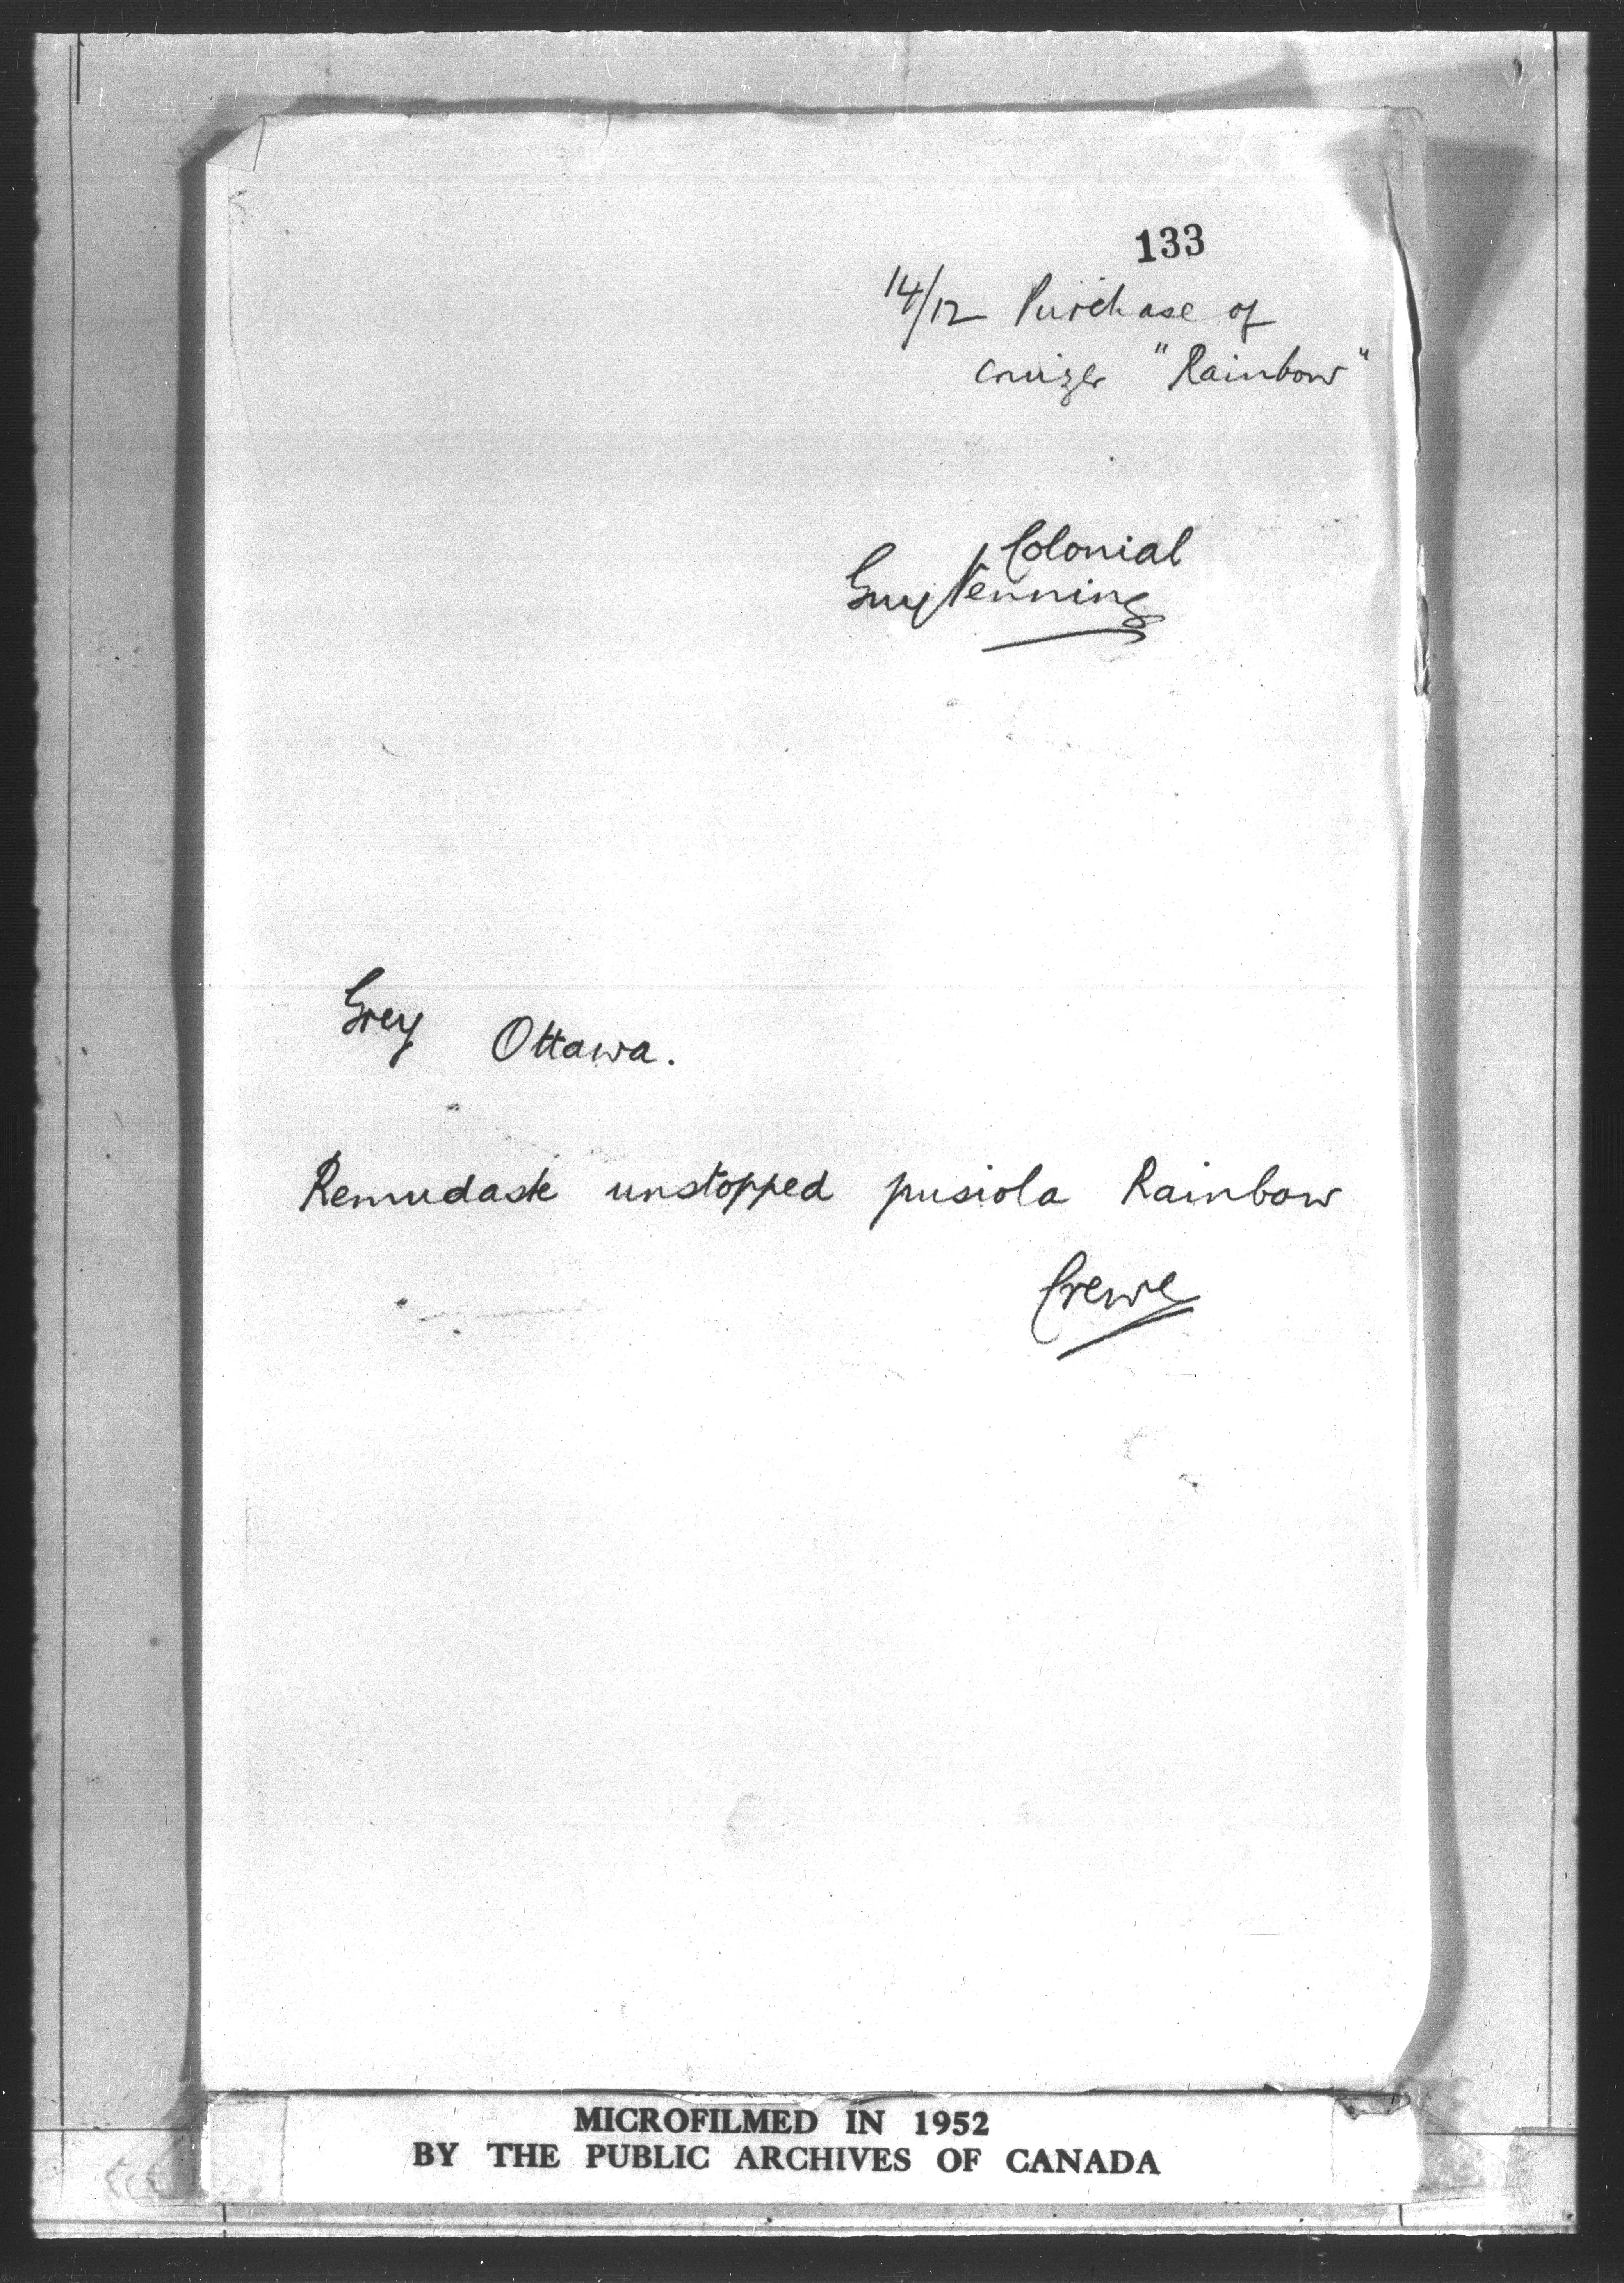 133
14/12 Purchase of
cruizer "Rainbow"
Colonial
Guy Venning
Grey Ottawa.
Remudaste unstopped pusiola Rainbow
Crewe
MICROFILMED IN 1952
BY THE PUBLIC ARCHIVES OF CANADA